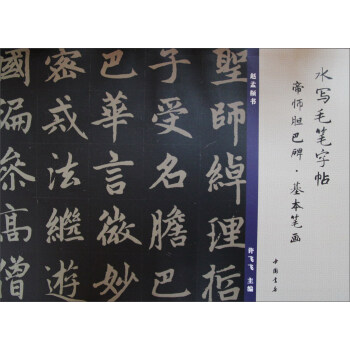 水写毛笔字帖
帝师胆巴碑·基本笔画
中国书店
赵孟頫书
飞飞 主编
聖師綽理哲
子受名膽巴
巴華言微妙
密戒法繼遊
國徧參高僧